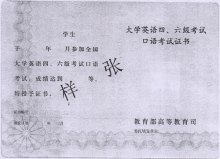 学生
于 年 月参加全国
大学英语四、六级考试口语
考试，成绩达到 等，
特授予证书。
大学英语四、六级考试
口语考试证书
样张
教育部高等教育司